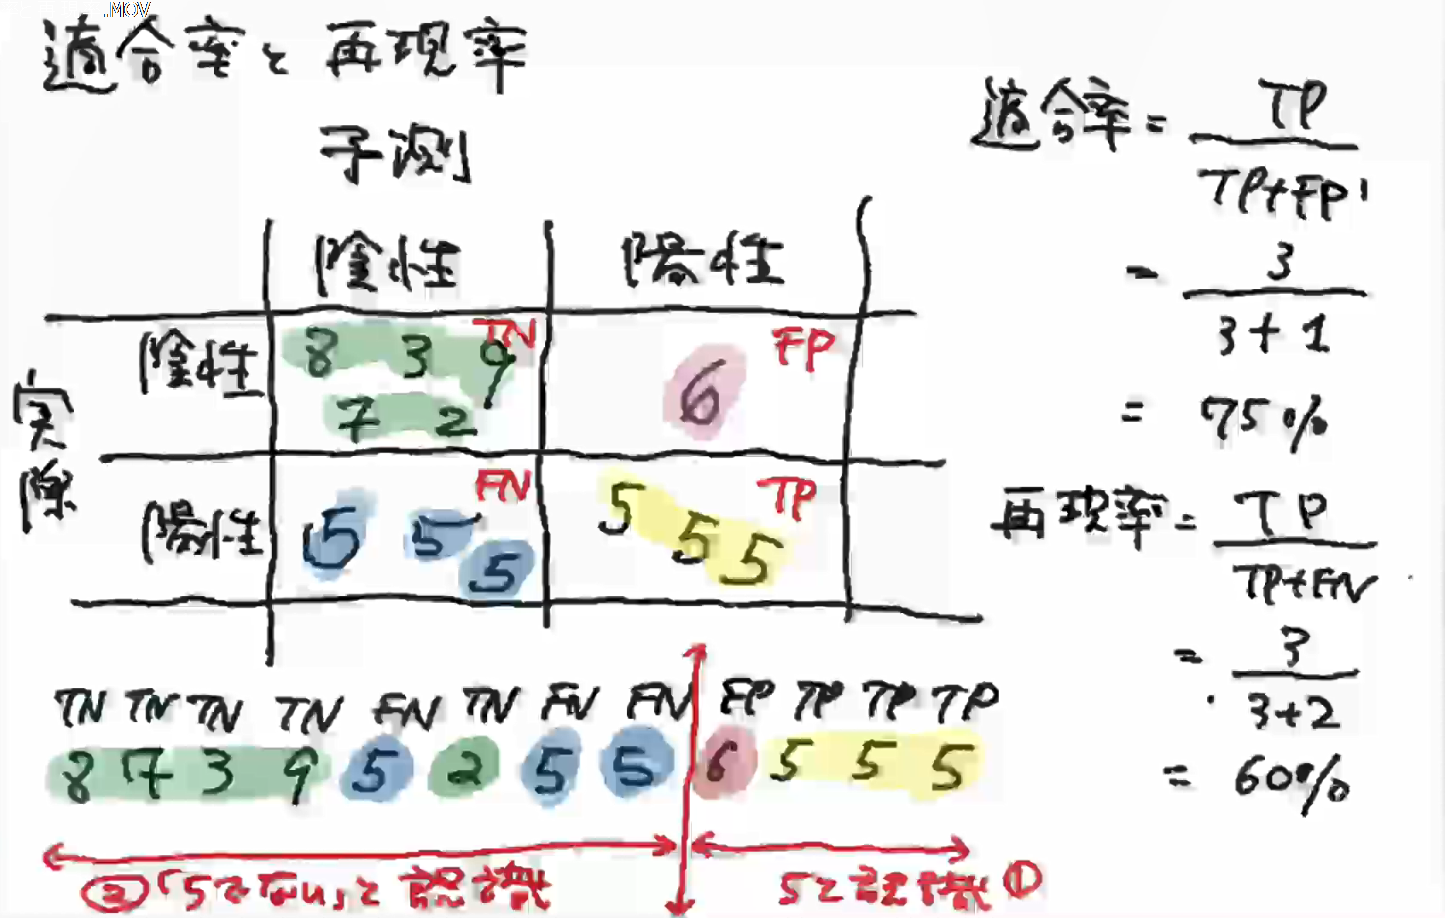 .MOV
適合率と再現率
予測
陰性 陽性
実際
陰性 8 3 9 TN 6 FP
7 2
陽性 5 5 5 FN 5 5 5 TP
TN TN TN TN FN TN FN FN FP TP TP TP
8 7 3 9 5 2 5 5 6 5 5 5
②「5でない」と認識 5と認識①
適合率 = TP
TP+FP
= 3
3+1
= 75%
再現率 = TP
TP+FN
= 3
3+2
= 60%